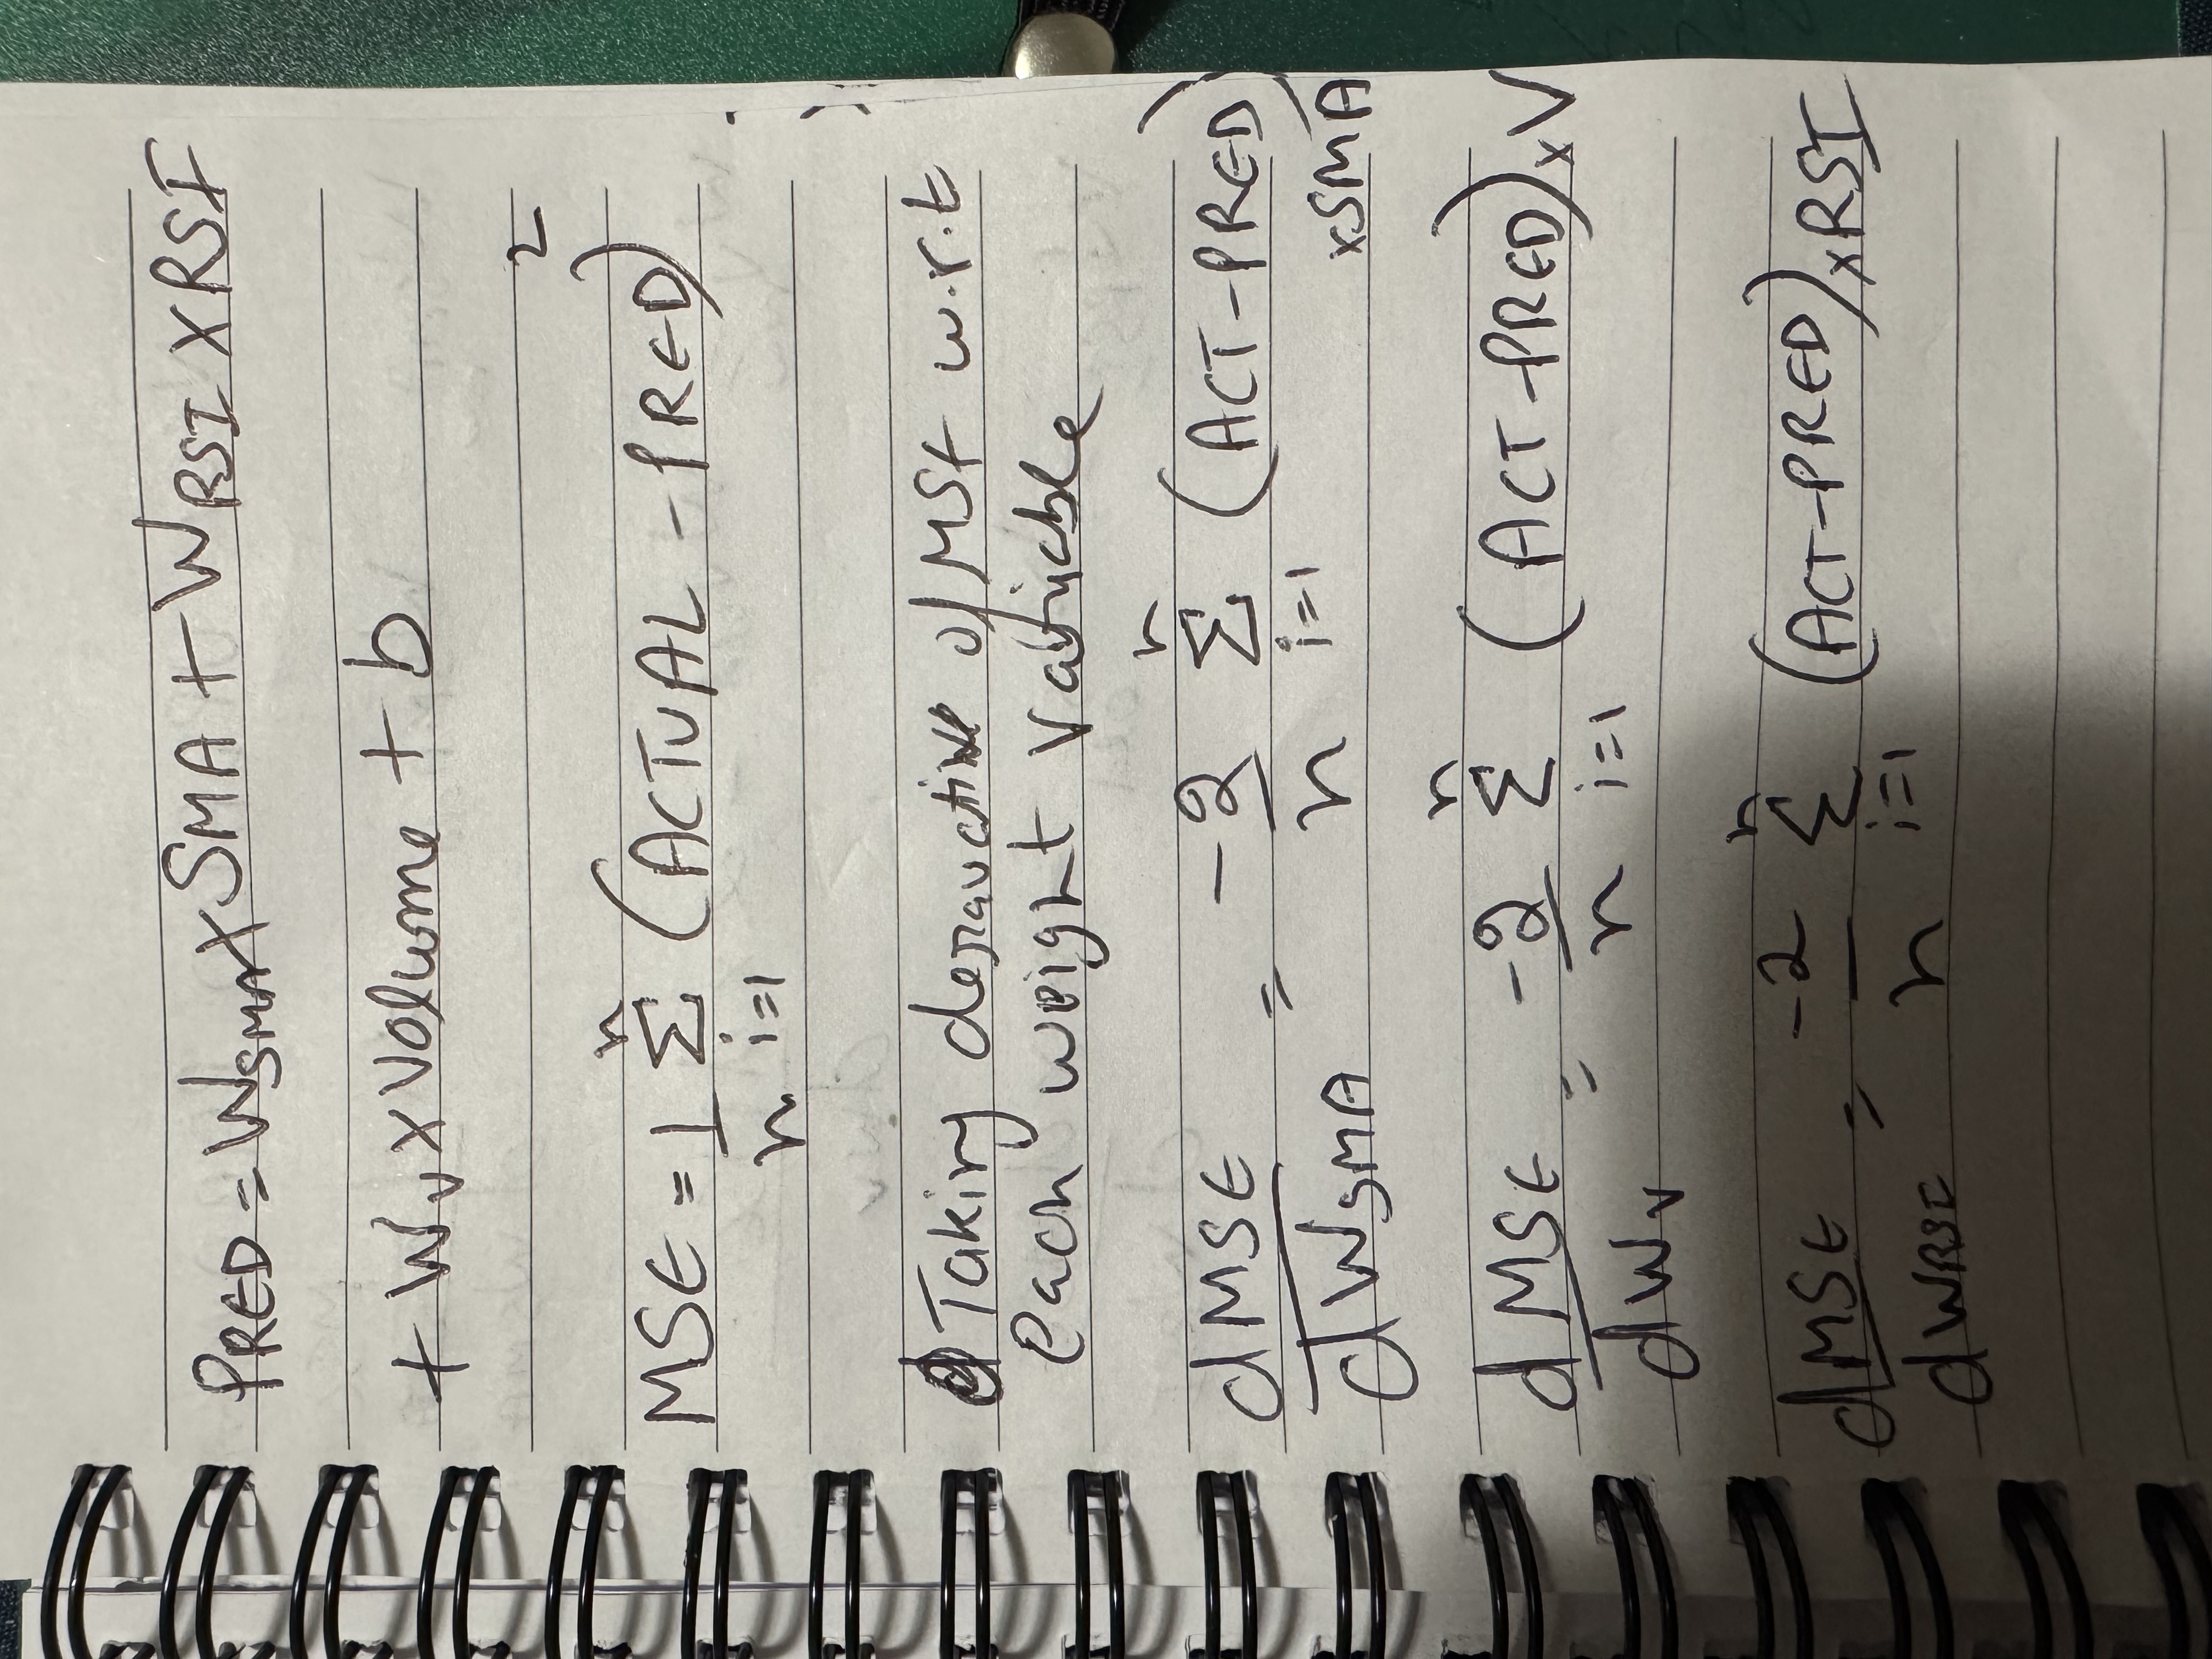 PRED = W_SMA × SMA + W_RSI × RSI
+ W_V × Volume + b
MSE = 1/n Σ_{i=1}^{n} (ACTUAL - PRED)^2
Taking deravative of MSE w.r.t
each weight variable
dMSE/dW_SMA = -2/n Σ_{i=1}^{n} (ACT-PRED)
×SMA
dMSE/dW_V = -2/n Σ_{i=1}^{n} (ACT-PRED)×V
dMSE/dW_RSI = -2/n Σ_{i=1}^{n} (ACT-PRED)×RSI